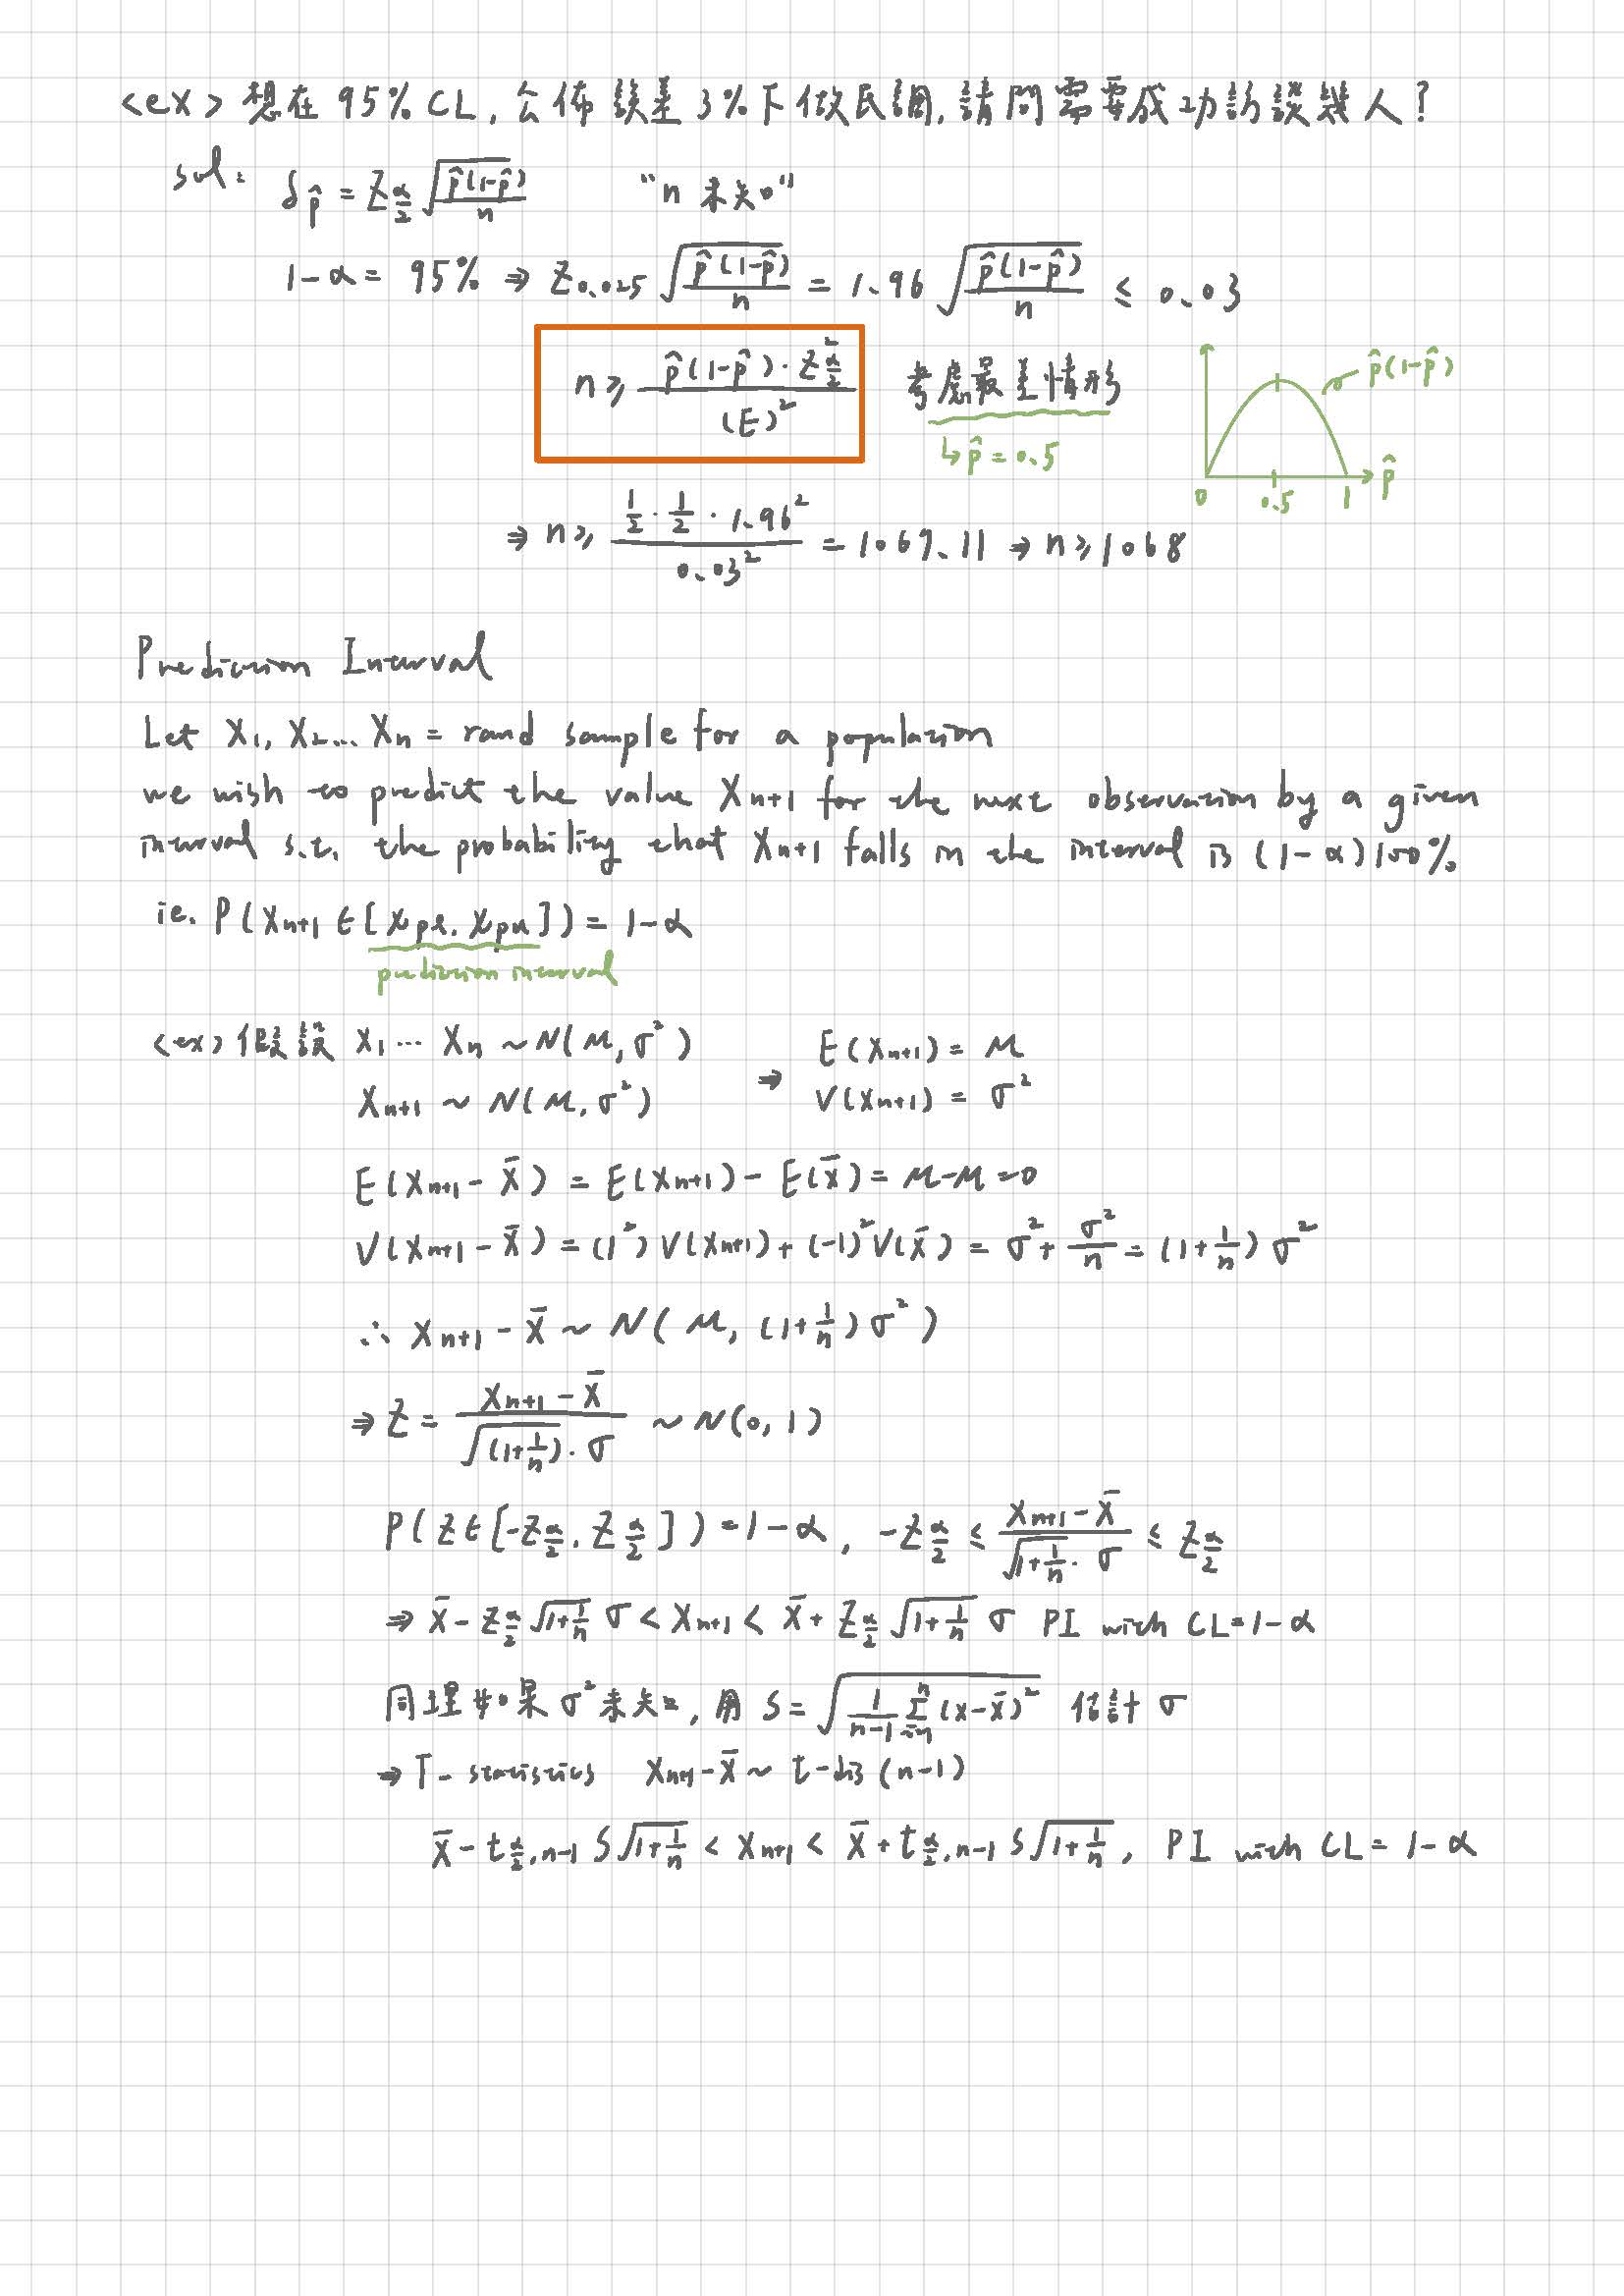 <ex> 想在 95% CL, 公佈誤差 3% 下做民調, 請問需要成功訪談幾人?
sol: δ_p̂ = Z_{α/2} √(p̂(1-p̂)/n) "n 未知"
1-α = 95% ⇒ Z_{0.025} √(p̂(1-p̂)/n) = 1.96 √(p̂(1-p̂)/n) ≤ 0.03
n ≥ p̂(1-p̂)·Z_{α/2}² / (E)² 考慮最差情形 p̂(1-p̂)
↳ p̂ = 0.5 0 0.5 1 p̂
⇒ n ≥ (1/2 · 1/2 · 1.96²) / 0.03² = 1067.11 ⇒ n ≥ 1068
Prediction Interval
Let X₁, X₂... Xₙ = rand sample for a population
we wish to predict the value Xₙ₊₁ for the next observation by a given
interval s.t. the probability that Xₙ₊₁ falls in the interval is (1-α)100%
ie. P(Xₙ₊₁ ∈ [x_{pl}, x_{pu}]) = 1-α
prediction interval
<ex> 假設 X₁ ... Xₙ ~ N(μ, σ²) ⇒ E(Xₙ₊₁) = μ
Xₙ₊₁ ~ N(μ, σ²) V(Xₙ₊₁) = σ²
E(Xₙ₊₁ - X̄) = E(Xₙ₊₁) - E(X̄) = μ-μ = 0
V(Xₙ₊₁ - X̄) = (1²) V(Xₙ₊₁) + (-1)² V(X̄) = σ² + σ²/n = (1+1/n) σ²
∴ Xₙ₊₁ - X̄ ~ N(μ, (1+1/n) σ²)
⇒ Z = (Xₙ₊₁ - X̄) / (√(1+1/n) · σ) ~ N(0, 1)
P(Z ∈ [-Z_{α/2}, Z_{α/2}]) = 1-α, -Z_{α/2} ≤ (Xₙ₊₁ - X̄) / (√(1+1/n) · σ) ≤ Z_{α/2}
⇒ X̄ - Z_{α/2} √(1+1/n) σ < Xₙ₊₁ < X̄ + Z_{α/2} √(1+1/n) σ PI with CL = 1-α
同理如果 σ² 未知, 用 S = √(1/(n-1) Σ (x-x̄)²) 估計 σ
⇒ T-statistics Xₙ₊₁ - X̄ ~ t-dis (n-1)
X̄ - t_{α/2, n-1} S √(1+1/n) < Xₙ₊₁ < X̄ + t_{α/2, n-1} S √(1+1/n), PI with CL = 1-α